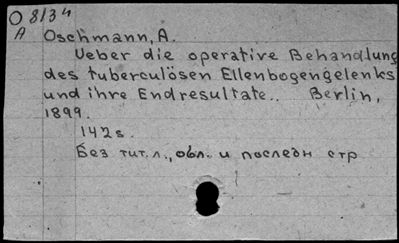 O 8/34
A Oschmann, A.
Ueber die operative Behandlung
des tuberculösen Ellenbogengelenks
und ihre Endresultate.. Berlin,
1899.
142s.
Без тит.л., обл. и последн стр